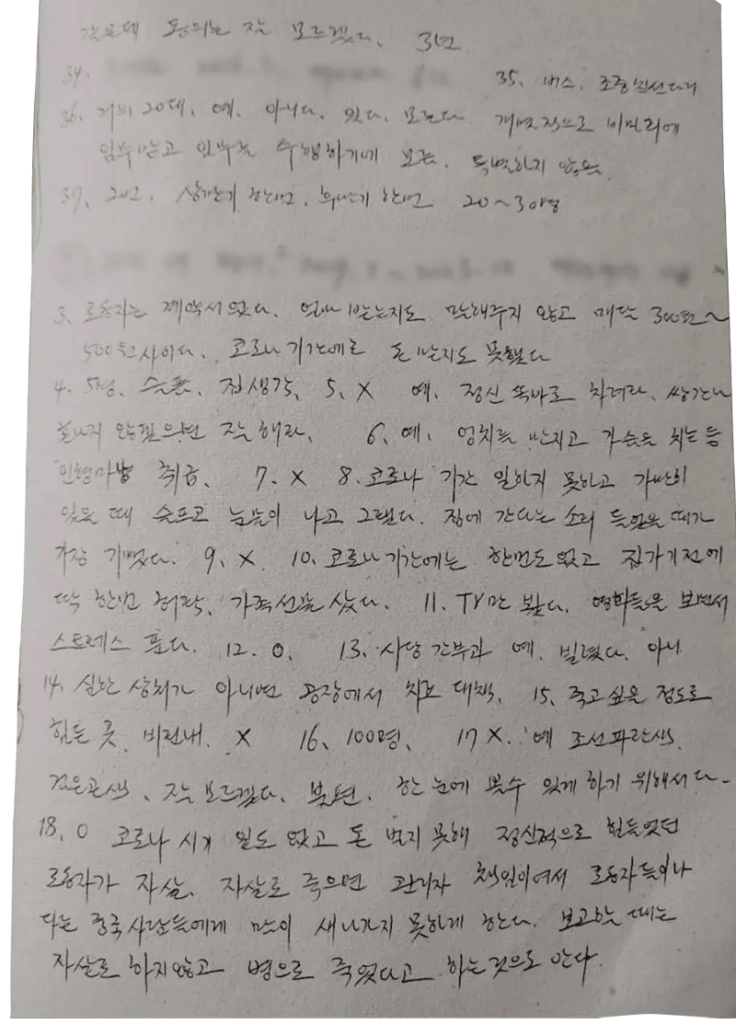 같은데 동의는 잘 모르겠다. 3년
34. 35. 버스, 조중친선다리
36. 거의 20대, 예, 아니다, 있다. 모른다. 개별적으로 비밀리에
임무 받고 임무를 수행하기에 모름. 특별하지 않음.
37. 2번, 상반기 한번, 후반기 한번 20~30명
3. 로동자는 계약서 없다. 얼마 받는지도 말해주지 않고 매달 300원~
500원사이다. 코로나 기간에는 돈 받지도 못했다
4. 5명, 슬픔, 집생각, 5. X 예. 정신 똑바로 차려라, 쌍간나
않겠으면 잘해라, 6. 예, 엉치를 만지고 가슴을 치는 등
인형마냥 취급, 7. X 8. 코로나 기간 일하지 못하고 가만히
있을 때 슬프고 눈물이 나고 그랬다. 집에 간다는 소리 들었을 때가
가장 기뻤다. 9. X. 10. 코로나 기간에는 한번도 없고 집가기전에
딱 한번 허락, 가족선물 샀다. 11. TV만 봤다. 영화들을 보면서
스트레스 푼다. 12. 0. 13. 사당 간부과 예. 빌렸다. 아니
14. 심한 상처가 아니면 공장에서 치료 대책, 15. 죽고싶은 정도로
힘든 곳, 비린내. X 16. 100명, 17 X. 예 조선파란색,
검은곤색, 잘 모르겠다. 북변, 한 눈에 볼수 있게 하기 위해서다.
18. 0 코로나 시기 일도 없고 돈 벌지 못해 정신적으로 힘들었던
로동자가 자살, 자살로 죽으면 관리자 책임이여서 로동자들이나
다른 중국사람들에게 말이 새나가지 못하게 한다. 보고하는 때는
자살로 하지않고 병으로 죽었다고 하는것으로 안다.